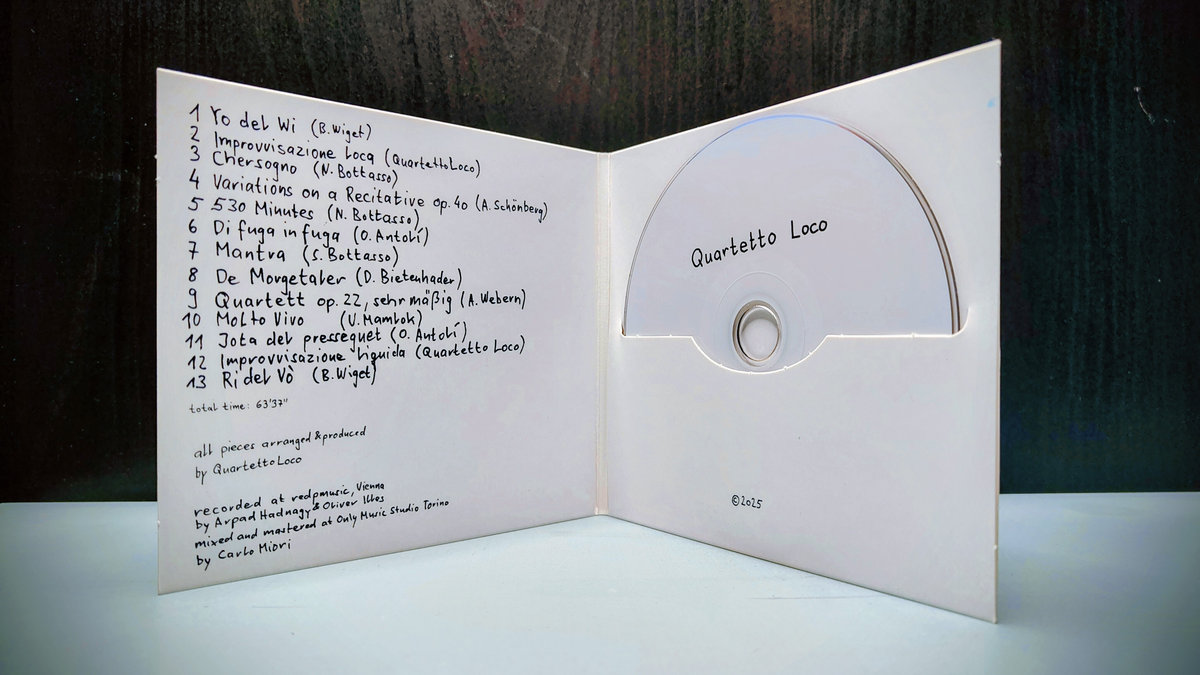 1 Yo del Wi (B. Wiget)
2 Improvvisazione Loca (Quartetto Loco)
3 Chersogno (N. Bottasso)
4 Variations on a Recitative op. 40 (A. Schönberg)
5 530 Minutes (N. Bottasso)
6 Di fuga in fuga (O. Antolí)
7 Mantra (S. Bottasso)
8 De Morgetaler (D. Bietenhader)
9 Quartett op. 22, sehr mäßig (A. Webern)
10 Molto Vivo (U. Mamlok)
11 Jota del presseguet (O. Antolí)
12 Improvvisazione liquida (Quartetto Loco)
13 Ri del Vò (B. Wiget)
total time: 63'37"
all pieces arranged & produced
by Quartetto Loco
recorded at redpmusic, Vienna
by Arpad Hadnagy & Oliver Illes
mixed and mastered at Only Music Studio Torino
by Carlo Miori
Quartetto Loco
©2025